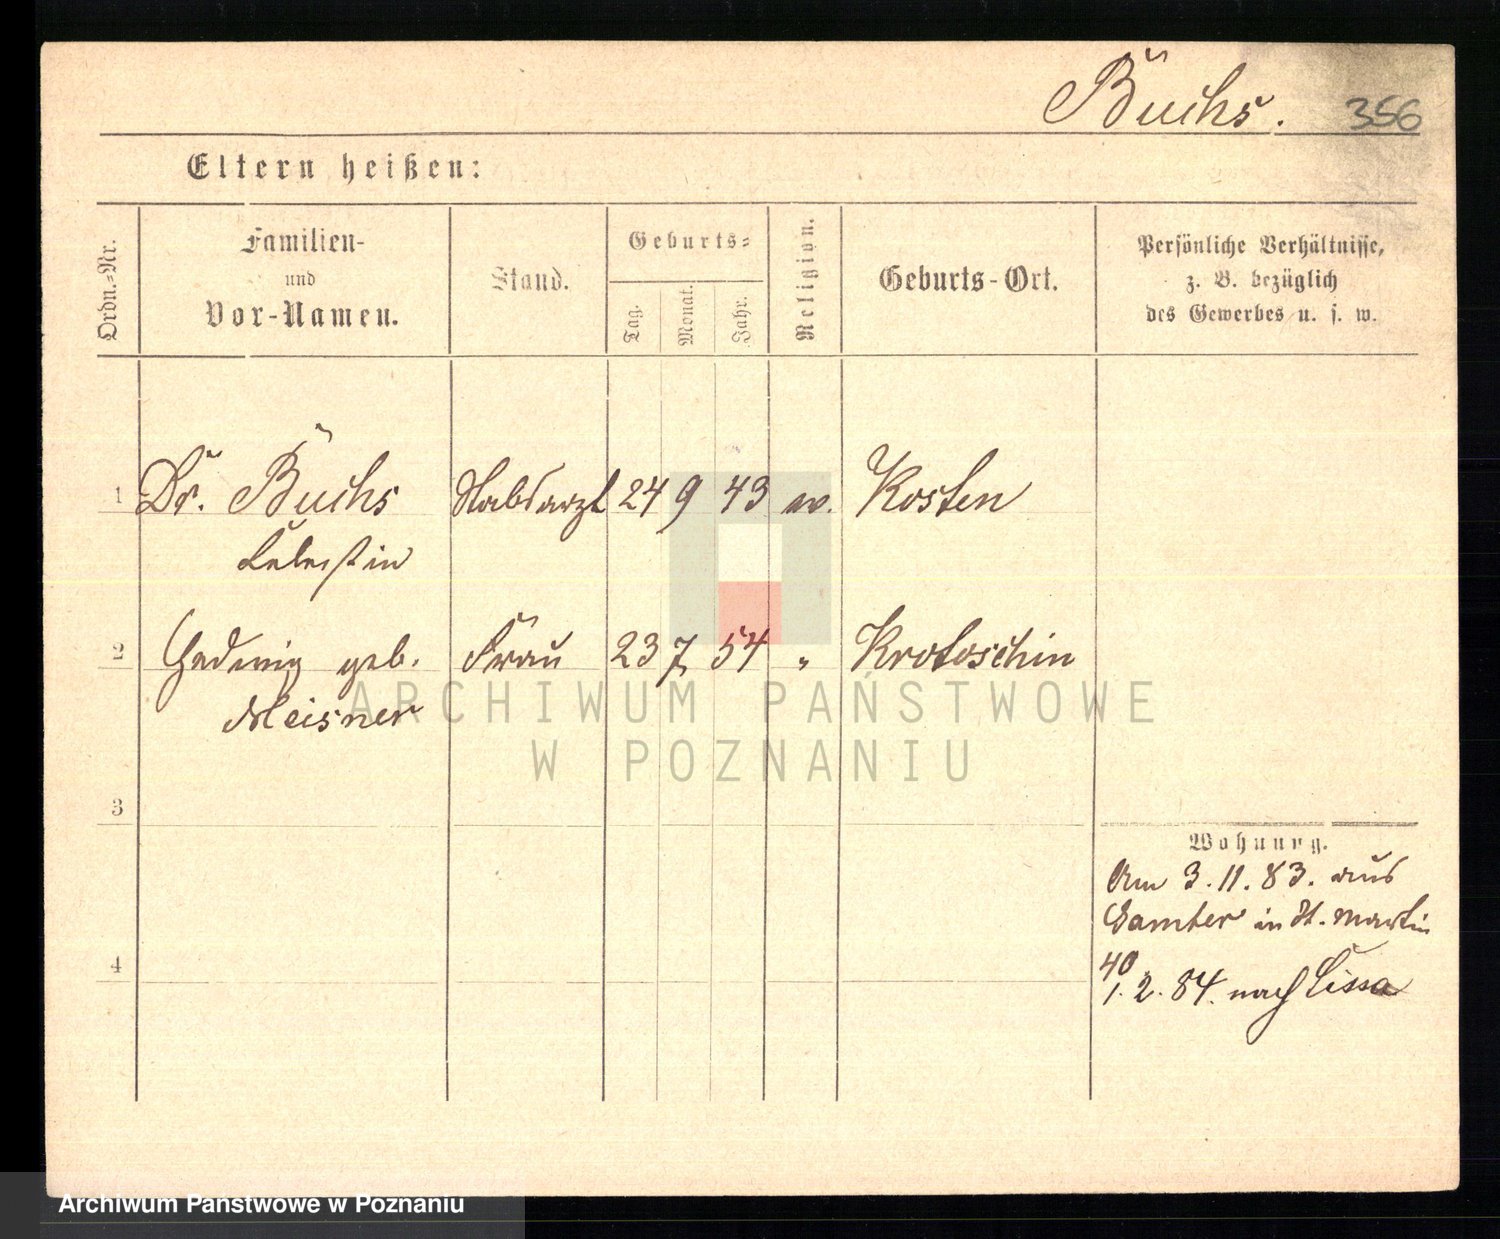 Büchs. 356
Eltern heißen:
Ordn.-Nr.
Familien-
und
Vor-Namen.
Stand.
Geburts-
Tag.
Monat.
Jahr.
Religion.
Geburts-Ort.
Persönliche Verhältnisse,
z. B. bezüglich
des Gewerbes u. s. w.
1 Dr. Büchs Stabsarzt 24 9 43 ev. Kosten
Celestin
2 Hedwig geb. Frau 23 7 54 " Krotoschin
Meisner
3
4
Wohnung.
Am 3.11.83. aus
Samter in St. Martin
40
1.2.84. nach Lissa
ARCHIWUM PAŃSTWOWE
W POZNANIU
Archiwum Państwowe w Poznaniu